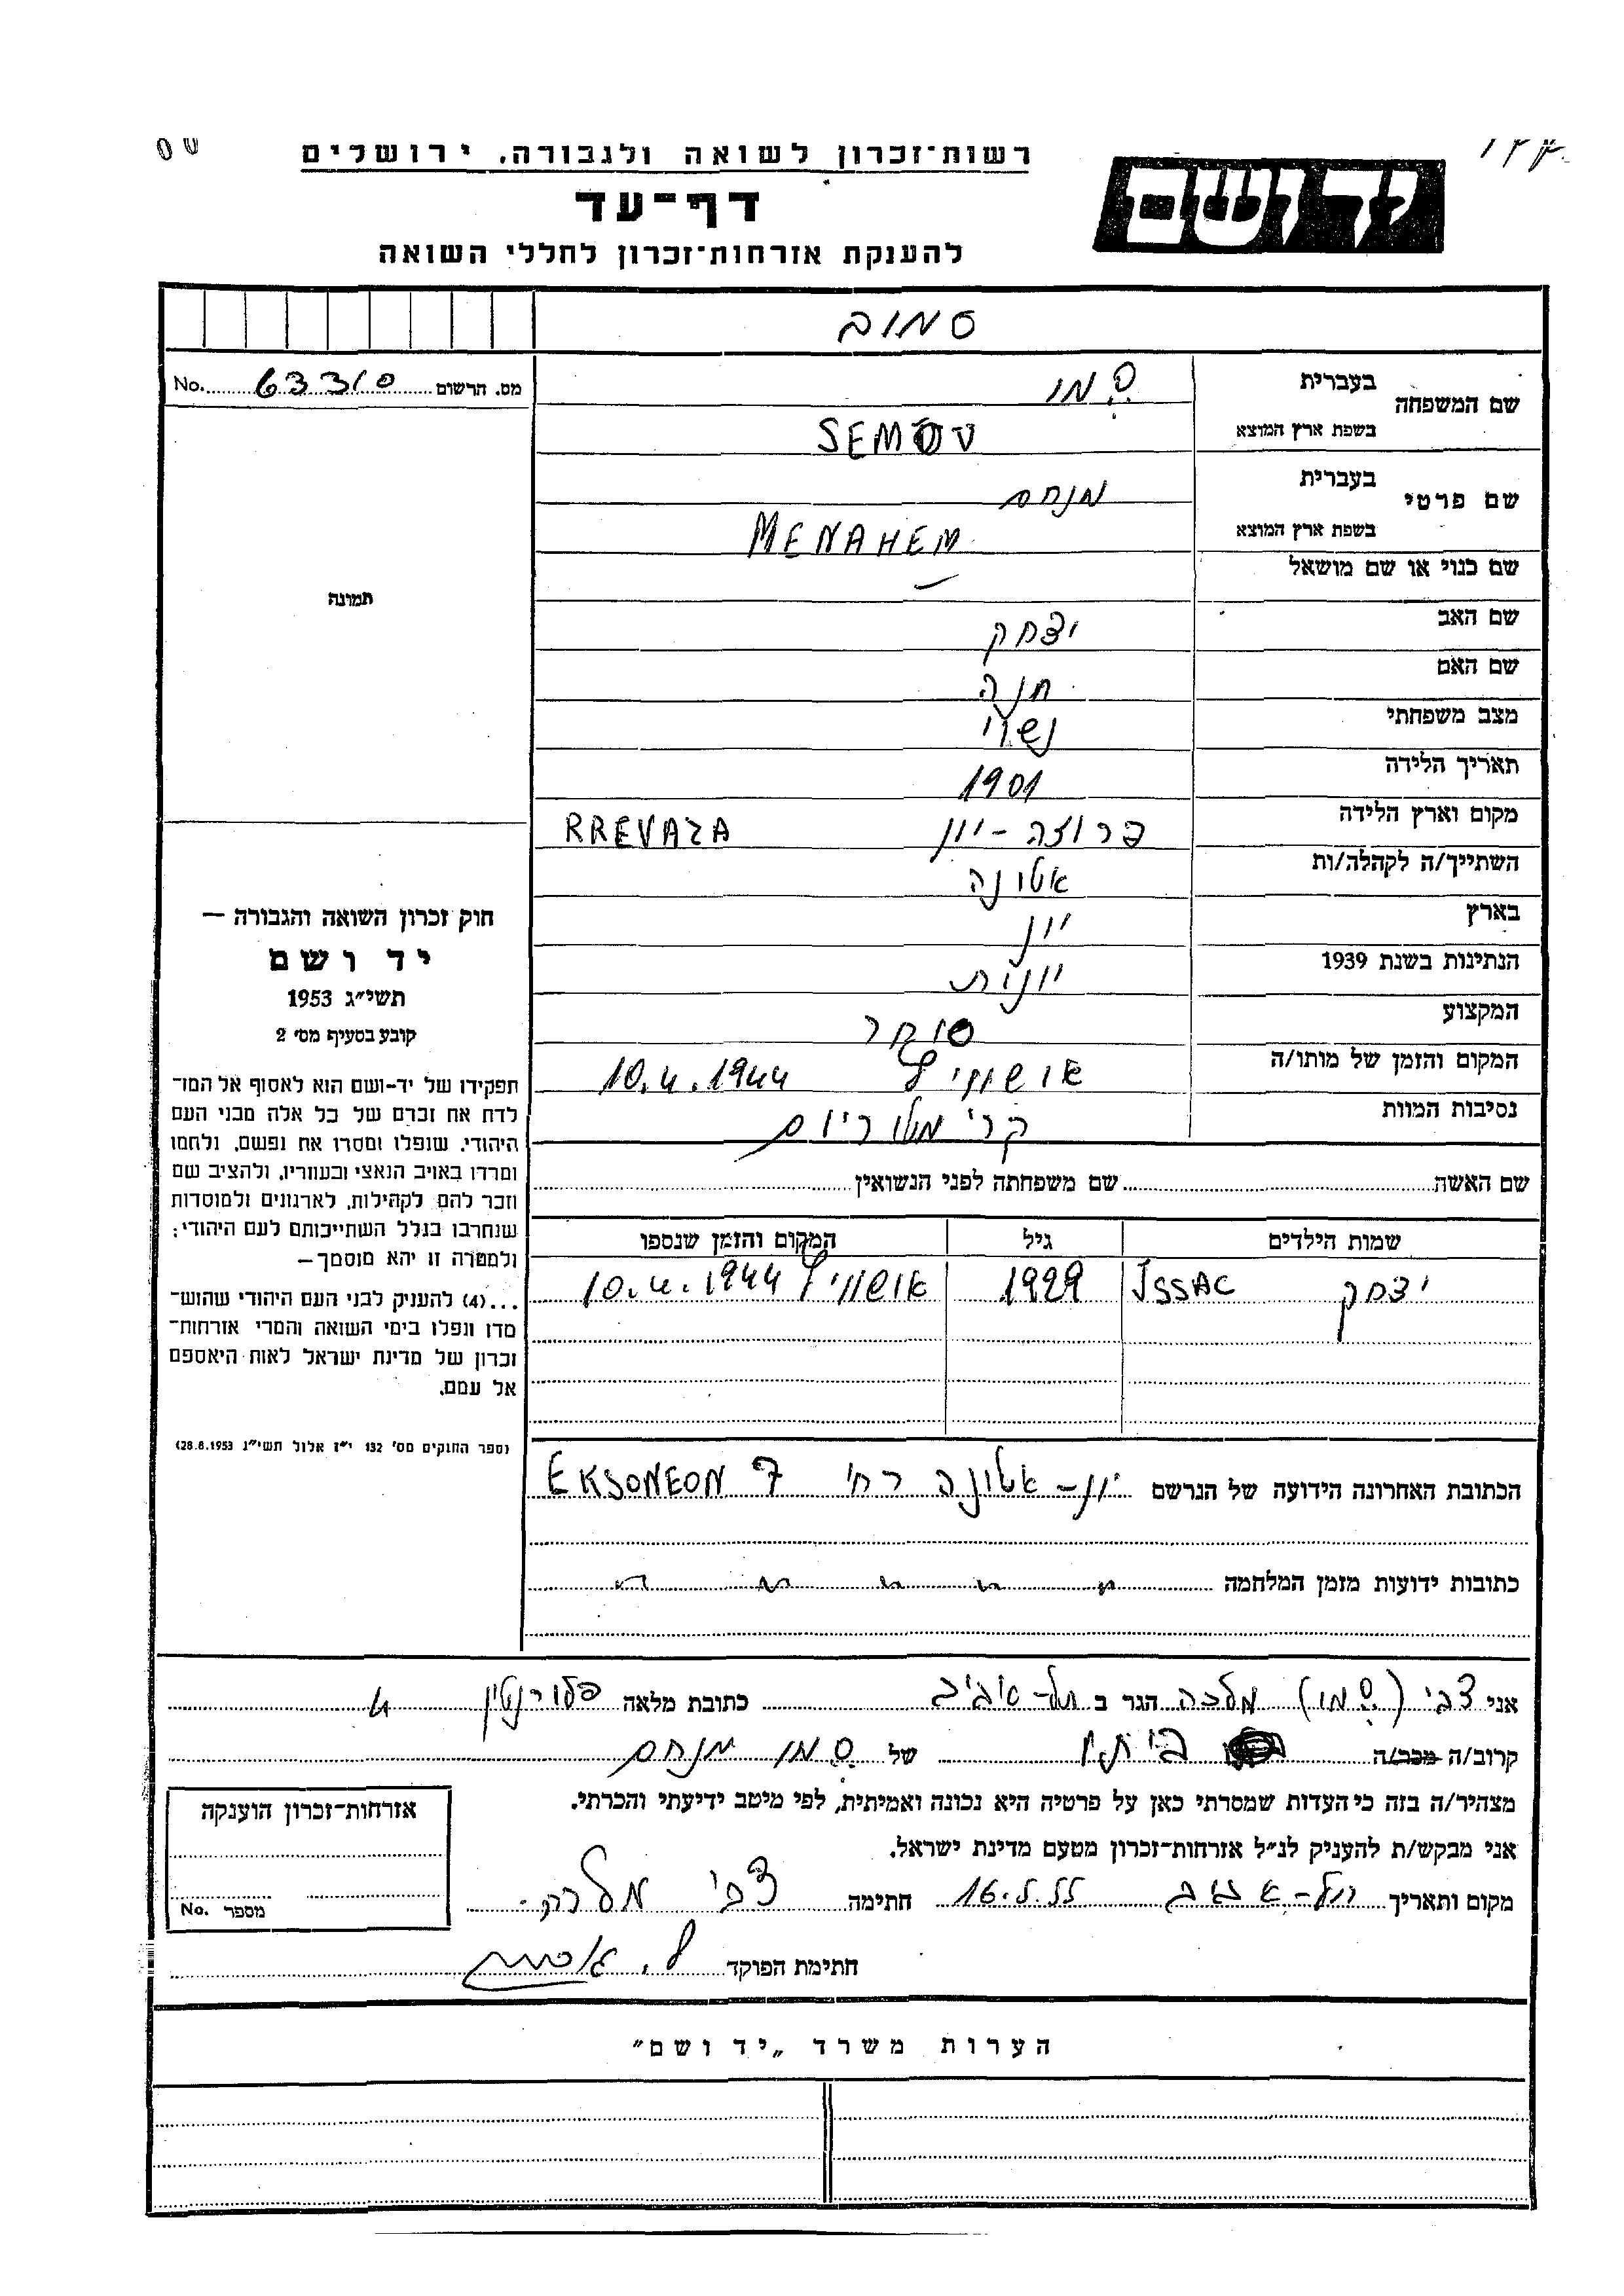 רשות־זכרון לשואה ולגבורה, ירושלים
דף־עד
להענקת אזרחות־זכרון לחללי השואה
יד ושם
סמוב
מס. הרשום 63310 No.
שם המשפחה בעברית סמו
בשפת ארץ המוצא SEMOV
שם פרטי בעברית מנחם
בשפת ארץ המוצא MENAHEM
שם כנוי או שם מושאל –
שם האב יצחק
שם האם חנה
מצב משפחתי נשוי
תאריך הלידה 1901
מקום וארץ הלידה פרוזה - יון RREVAZA
השתייך/ה לקהלה/ות אטונה
בארץ יון
הנתינות בשנת 1939 יונית
המקצוע סוחר
המקום והזמן של מותו/ה אושוויץ 10.4.1944
נסיבות המוות קרימטוריום
שם האשה שם משפחתה לפני הנשואין
שמות הילדים גיל המקום והזמן שנספו
יצחק ISSAC 1929 אושוויץ 10.4.1944
תמונה
חוק זכרון השואה והגבורה —
יד ושם
תשי״ג 1953
קובע בסעיף מס׳ 2
תפקידו של יד-ושם הוא לאסוף אל המו־
לדת את זכרם של כל אלה מבני העם
היהודי, שנפלו ומסרו את נפשם, נלחמו
ומרדו באויב הנאצי ובעוזריו, ולהציב שם
וזכר להם לקהילות, לארגונים ולמוסדות
שנחרבו בגלל השתייכותם לעם היהודי;
ולמטרה זו יהא מוסמך—
...(4) להעניק לבני העם היהודי שהוש־
מדו ונפלו בימי השואה והמרי אזרחות־
זכרון של מדינת ישראל לאות היאספם
אל עמם.
(ספר החוקים מס׳ 132 י״ז אלול תשי״ג 28.8.1953)
הכתובת האחרונה הידועה של הנרשם יון - אטונה רח׳ 7 EKSONEON
כתובות ידועות מזמן המלחמה
אני צבי (סמו) מלכה הגר ב תל-אביב כתובת מלאה פלורנטין 4
קרוב/ה מכר/ה ביתו של סמו מנחם
מצהיר/ה בזה כי העדות שמסרתי כאן על פרטיה היא נכונה ואמיתית, לפי מיטב ידיעתי והכרתי.
אני מבקש/ת להעניק לנ״ל אזרחות־זכרון מטעם מדינת ישראל.
מקום ותאריך תל-אביב 16.5.55 חתימה צבי מלכה
חתימת הפוקד
אזרחות־זכרון הוענקה
מספר No.
הערות משרד „יד ושם״